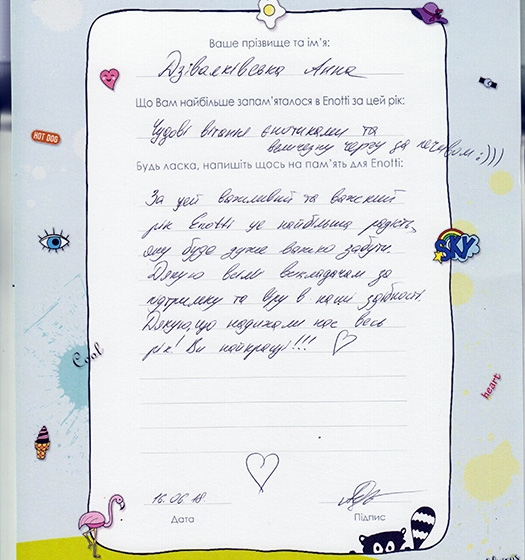 Ваше прізвище та ім'я:
Дзівалківська Анна
Що Вам найбільше запам'яталося в Enotti за цей рік:
Чудові вітання єнотиками та
величезну чергу за печивом :)))
Будь ласка, напишіть щось на пам'ять для Enotti:
За цей важливий та важкий
рік Enotti це найбільша радість,
яку буде дуже важко забути.
Дякую всім викладачам за
підтримку та віру в наші здібності.
Дякую, що надихали нас весь
рік! Ви найкращі!!!
16.06.18
Дата
Підпис
HOT DOG
SKY
Cool
heart